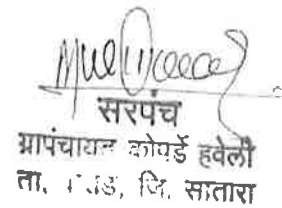 सरपंच
ग्रापंचायत कोपर्डे हवेली
ता. जि. सातारा